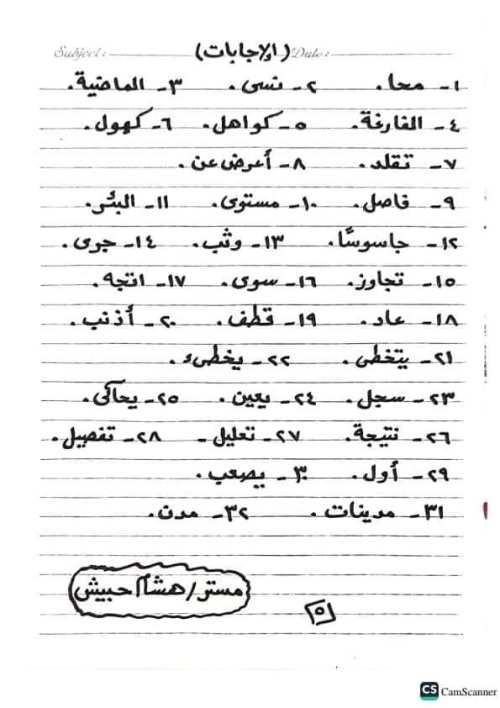 Subject: (الإجابات) Date:
١- محا. ٢- نسى. ٣- الماضية.
٤- الفارغة. ٥- كواهل. ٦- كهول.
٧- تقلد. ٨- أعرض عن.
٩- فاصل. ١٠- مستوى. ١١- البئر.
١٢- جاسوسًا. ١٣- وثب. ١٤- جرى.
١٥- تجاوز. ١٦- سوى. ١٧- اتجه.
١٨- عاد. ١٩- قطف. ٢٠- أذنب.
٢١- يتخطى. ٢٢- يخطىء.
٢٣- سجل. ٢٤- يعين. ٢٥- يحاكى.
٢٦- نتيجة. ٢٧- تعليل. ٢٨- تفصيل.
٢٩- أول. ٣٠- يصعب.
٣١- مدينات. ٣٢- مدن.
مستر/هشام حبيش
٥
CS CamScanner